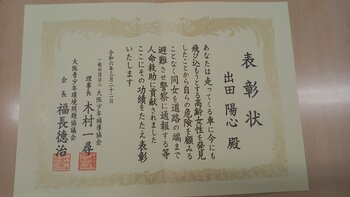 表彰状
出田 陽心 殿
あなたは走ってくる車に今にも
飛び込もうとする高齢女性を発見
したことから自らの危険を顧みる
ことなく同女を道路の端まで
避難させ警察に通報する等
人命救助に貢献されました
ここにその功績をたたえ表彰
いたします
令和六年三月二十二日
一般社団法人大阪少年補導協会
理事長 木村一尋
大阪青少年環境問題協議会
会長 福長徳治